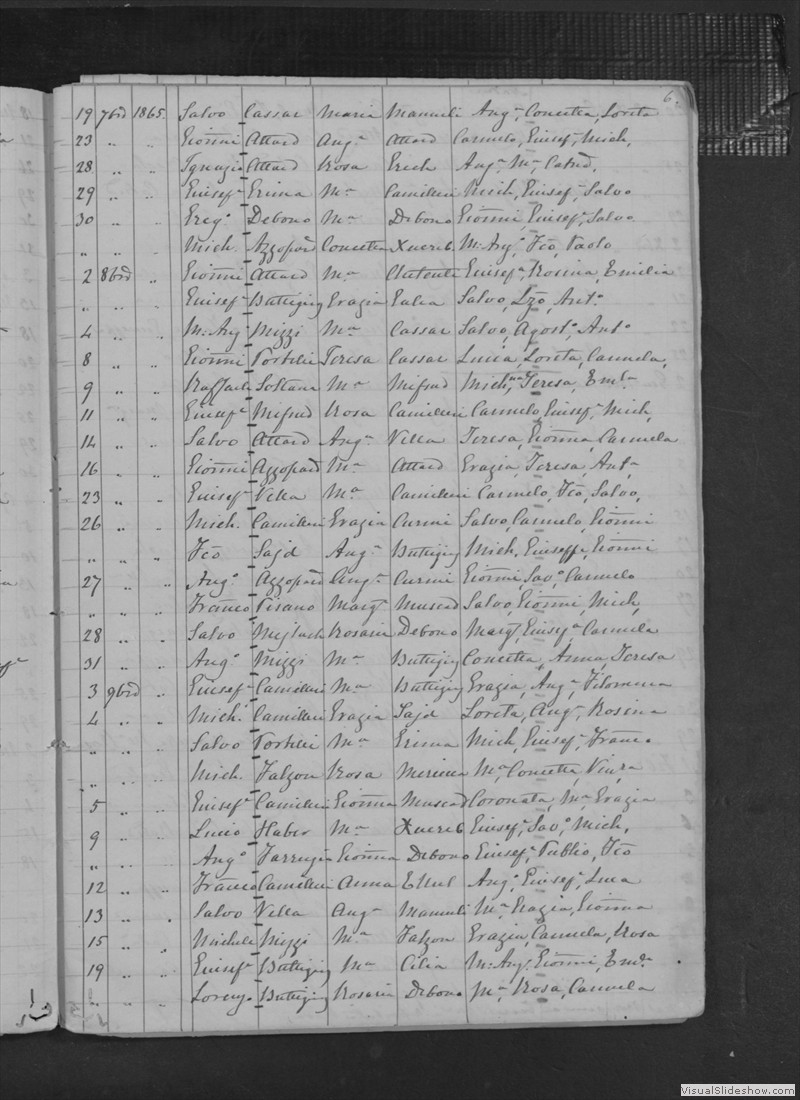 6.
19 7brd 1865. Salvo Cassar Maria Mamuli Ang.ª, Concetta, Lorita
23 " " Giōnni Attard Ang.ª Attard Carmelo, Giusef.e Mich,
28 " " Ignazio Attard Rosa Grech Ang.ª M.ª Catnā,
29 " " Giusef.e Grima M.ª Camilleri Mich, Giusef.e Salvo
30 " " Greg.o Debono M.ª Debono Giōnni, Giusef.e Salvo
" " " Mich. Azzopard Concetta Xuereb M. Ang.o Fcō, Paolo
2 8brd " Giōnni Attard M.ª Giusef.a Rosina, Emilia
" " " Giusef.e Buttigieg Grazia Galea Salvo, Lzō, Ant.o
4 " " M. Ang Mizzi M.ª Cassar Salvo, Agost.o Ant.o
8 " " Giōnni Portelli Teresa Cassar Lucia, Lorita, Carmela,
9 " " Raffaele Soltana M.ª Mifsud Mich.na Teresa, Em.la
11 " " Giusef.e Mifsud Rosa Camilleri Carmelo, Giusef.e Mich,
14 " " Salvo Attard Ang.ª Vella Teresa, Giōnna, Carmela
16 " " Giōnni Azzopard M.ª Attard Grazia, Teresa, Ant.a
23 " " Giusef.e Vella M.ª Camilleri Carmelo, Fcō, Salvo,
26 " " Mich. Camilleri Grazia Curmi Salvo, Carmelo, Giōnni
" " " Fcō Sajd Ang.ª Buttigieg Mich, Giuseppe, Giōnni
27 " " Ang.o Azzopard Ang.ª Curmi Giōnni Sav.o Carmelo
" " " Franco Pisano Marg.t Muscad Salvo, Giōnni, Mich,
28 " " Salvo Mejlach Rosaria Debono Marg.t, Giusef.a Carmela
31 " " Ang.o Mizzi M.ª Buttigieg Concetta, Anna Teresa
3 9brd " Giusef.e Camilleri M.ª Buttigieg Grazia, Ang.ª, Filomena
4 " " Mich. Camilleri Grazia Sajd Lorita, Ang.ª, Rosina
" " " Salvo Portelli M.ª Grima Mich, Giusef.e, Franc.o
" " " Mich. Falzon Rosa Mercieca M.ª, Concetta, Vin.za
5 " " Giusef.e Camilleri Giōnna Muscad Coronata, M.ª Grazia
9 " " Lucio Haber M.ª Xuereb Giusef.e, Sav.o, Mich,
" " " Ang.o Farrugia Giōnna Debono Giusef.e, Publio, Fcō
12 " " Franco Camilleri Anna Ellul Ang.o, Giusef.e, Luca
13 " " Salvo Vella Ang.ª Mamuli M.ª Grazia, Giōnna
15 " " Michele Mizzi M.ª Falzon Grazia, Carmela, Rosa
19 " " Giusef.e Buttigieg M.ª Cilia M. Ang.o Giōnni, Em.le
" " " Lorenzo Buttigieg Rosaria Debono M.ª, Rosa, Carmela
VisualSlideshow.com